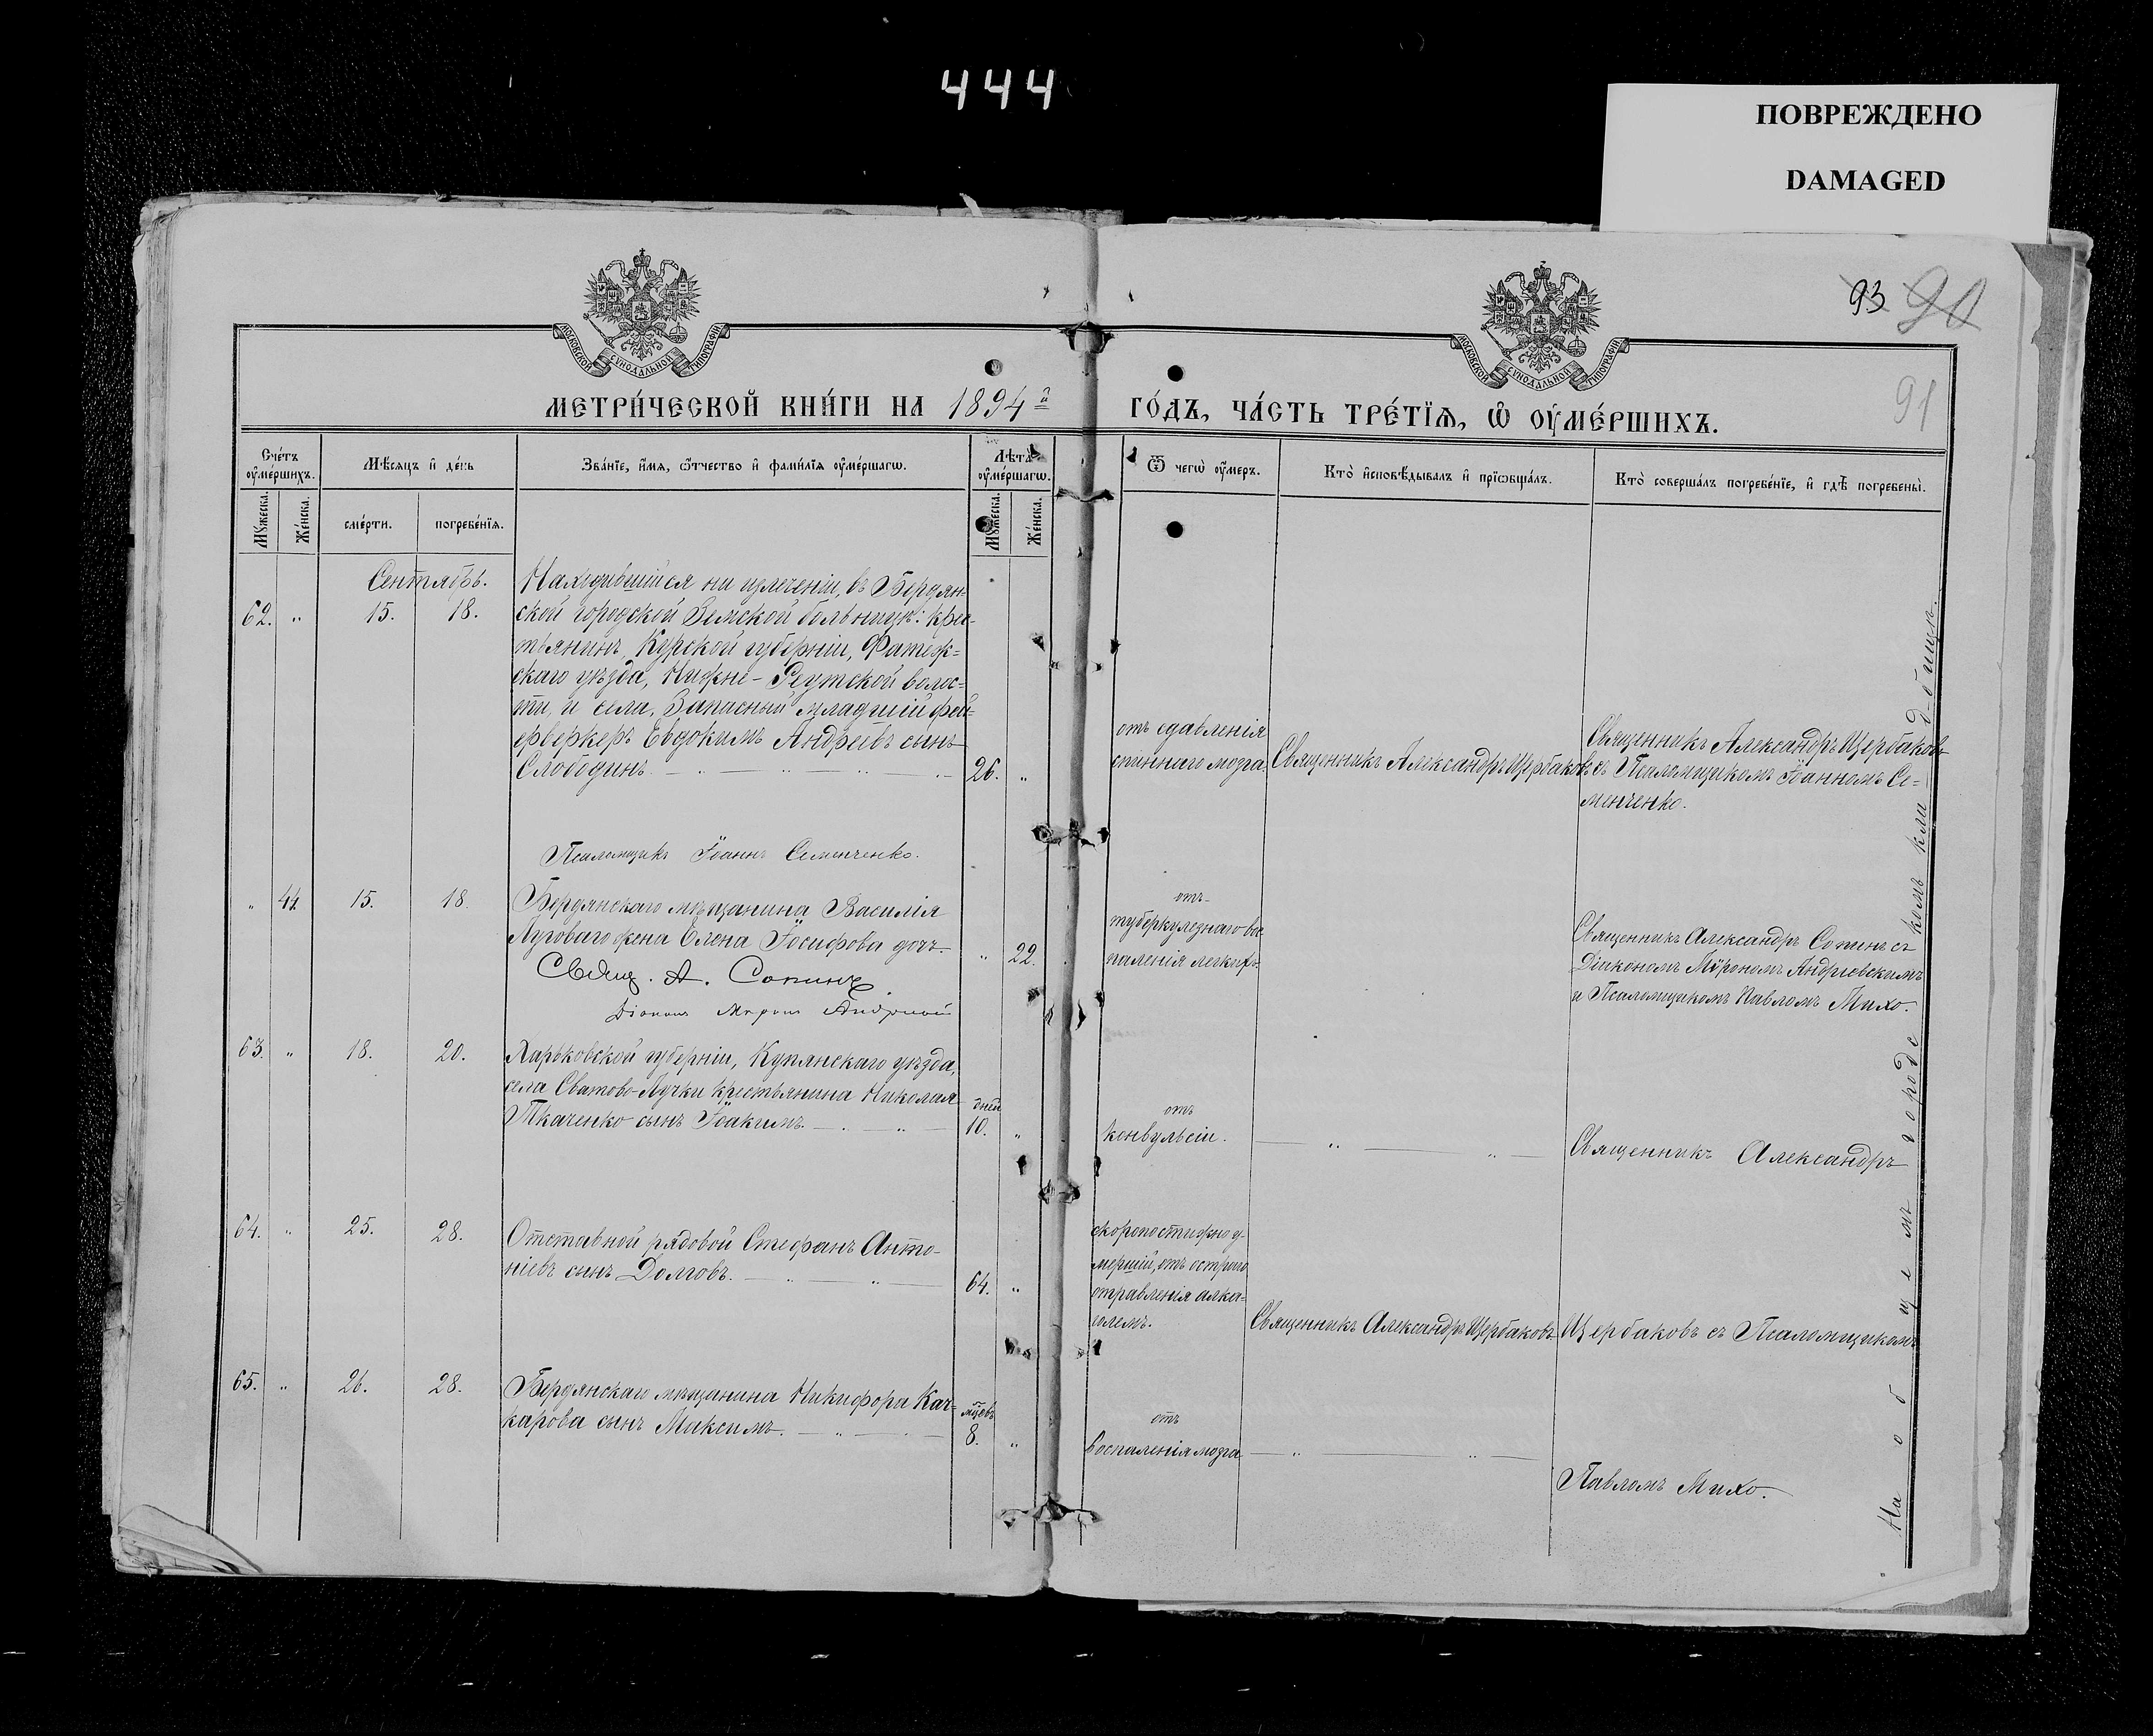 444
ПОВРЕЖДЕНО
DAMAGED
93 90
91
МОСКОВСКОЙ СѴНОДАЛЬНОЙ ТИПОГРАФІИ
МОСКОВСКОЙ СѴНОДАЛЬНОЙ ТИПОГРАФІИ
МЕТРИ́ЧЕСКОЙ КНИ́ГИ НА 1894й
ГО́ДЪ, ЧА́СТЬ ТРЕ́ТІѦ, Ѡ҆ ОУ҆МЕ́РШИХЪ.
Сче́тъ оу҆ме́ршихъ.
Мꙋ́жеска.
Же́нска.
Мѣ́сяцъ и҆ де́нь
сме́рти.
погребе́нїѧ.
Зва́нїе, и҆́мѧ, ѻ҆́тчество и҆ фами́лїѧ оу҆ме́ршагѡ.
Лѣ́та оу҆ме́ршагѡ.
Мꙋ́жеска.
Же́нска.
Ѿ чегѡ̀ оу҆́меръ.
Кто̀ и҆сповѣ́дывалъ и҆ прїѡбща́лъ.
Кто̀ соверша́лъ погребе́нїе, и҆ гдѣ̀ погребены̀.
Сентябрь.
62. " 15. 18.
Находившійся на излеченіи, въ Бердян-
ской городской Земской больницѣ: крес-
тьянинъ, Курской губерніи, Фатеж-
скаго уѣзда, Нижне-Реутской волос-
ти, и села, Запасный младшій фей-
ерверкеръ Евдокимъ Андреевъ сынъ
Слободинъ. 26. "
отъ сдавленія
спиннаго мозга.
Священникъ Александръ Щербаковъ
Священникъ Александръ Щербаковъ
съ Псаломщикомъ Іоанномъ Се-
менченко.
Псаломщикъ Іоаннъ Семенченко.
" 44. 15. 18.
Бердянскаго мѣщанина Василія
Луговаго жена Елена Іосифова дочь. " 22.
отъ
туберкулезнаго вос-
паленія легкихъ.
Священникъ Александръ Сопинъ съ
Діакономъ Мѵрономъ Андріевскимъ
и Псаломщикомъ Павломъ Михо.
Свящ. А. Сопинъ.
Діаконъ Миронъ
63. " 18. 20.
Харьковской губерніи, Купянскаго уѣзда,
села Сватово-Лучки крестьянина Николая
Ткаченко сынъ Іоакимъ.
дней
10. "
отъ
конвульсіи.
Священникъ Александръ
64. " 25. 28.
Отставной рядовой Стефанъ Анто-
ніевъ сынъ Долговъ. 64. "
скоропостижно у-
мершій, отъ остраго
отравленія алка-
големъ.
Священникъ Александръ Щербаковъ
Щербаковъ съ Псаломщикомъ
65. " 26. 28.
Бердянскаго мѣщанина Никифора Кач-
карова сынъ Максимъ.
мцевъ
8. "
отъ
воспаленія мозга
Павломъ Михо.
На общемъ городскомъ кладбищѣ.